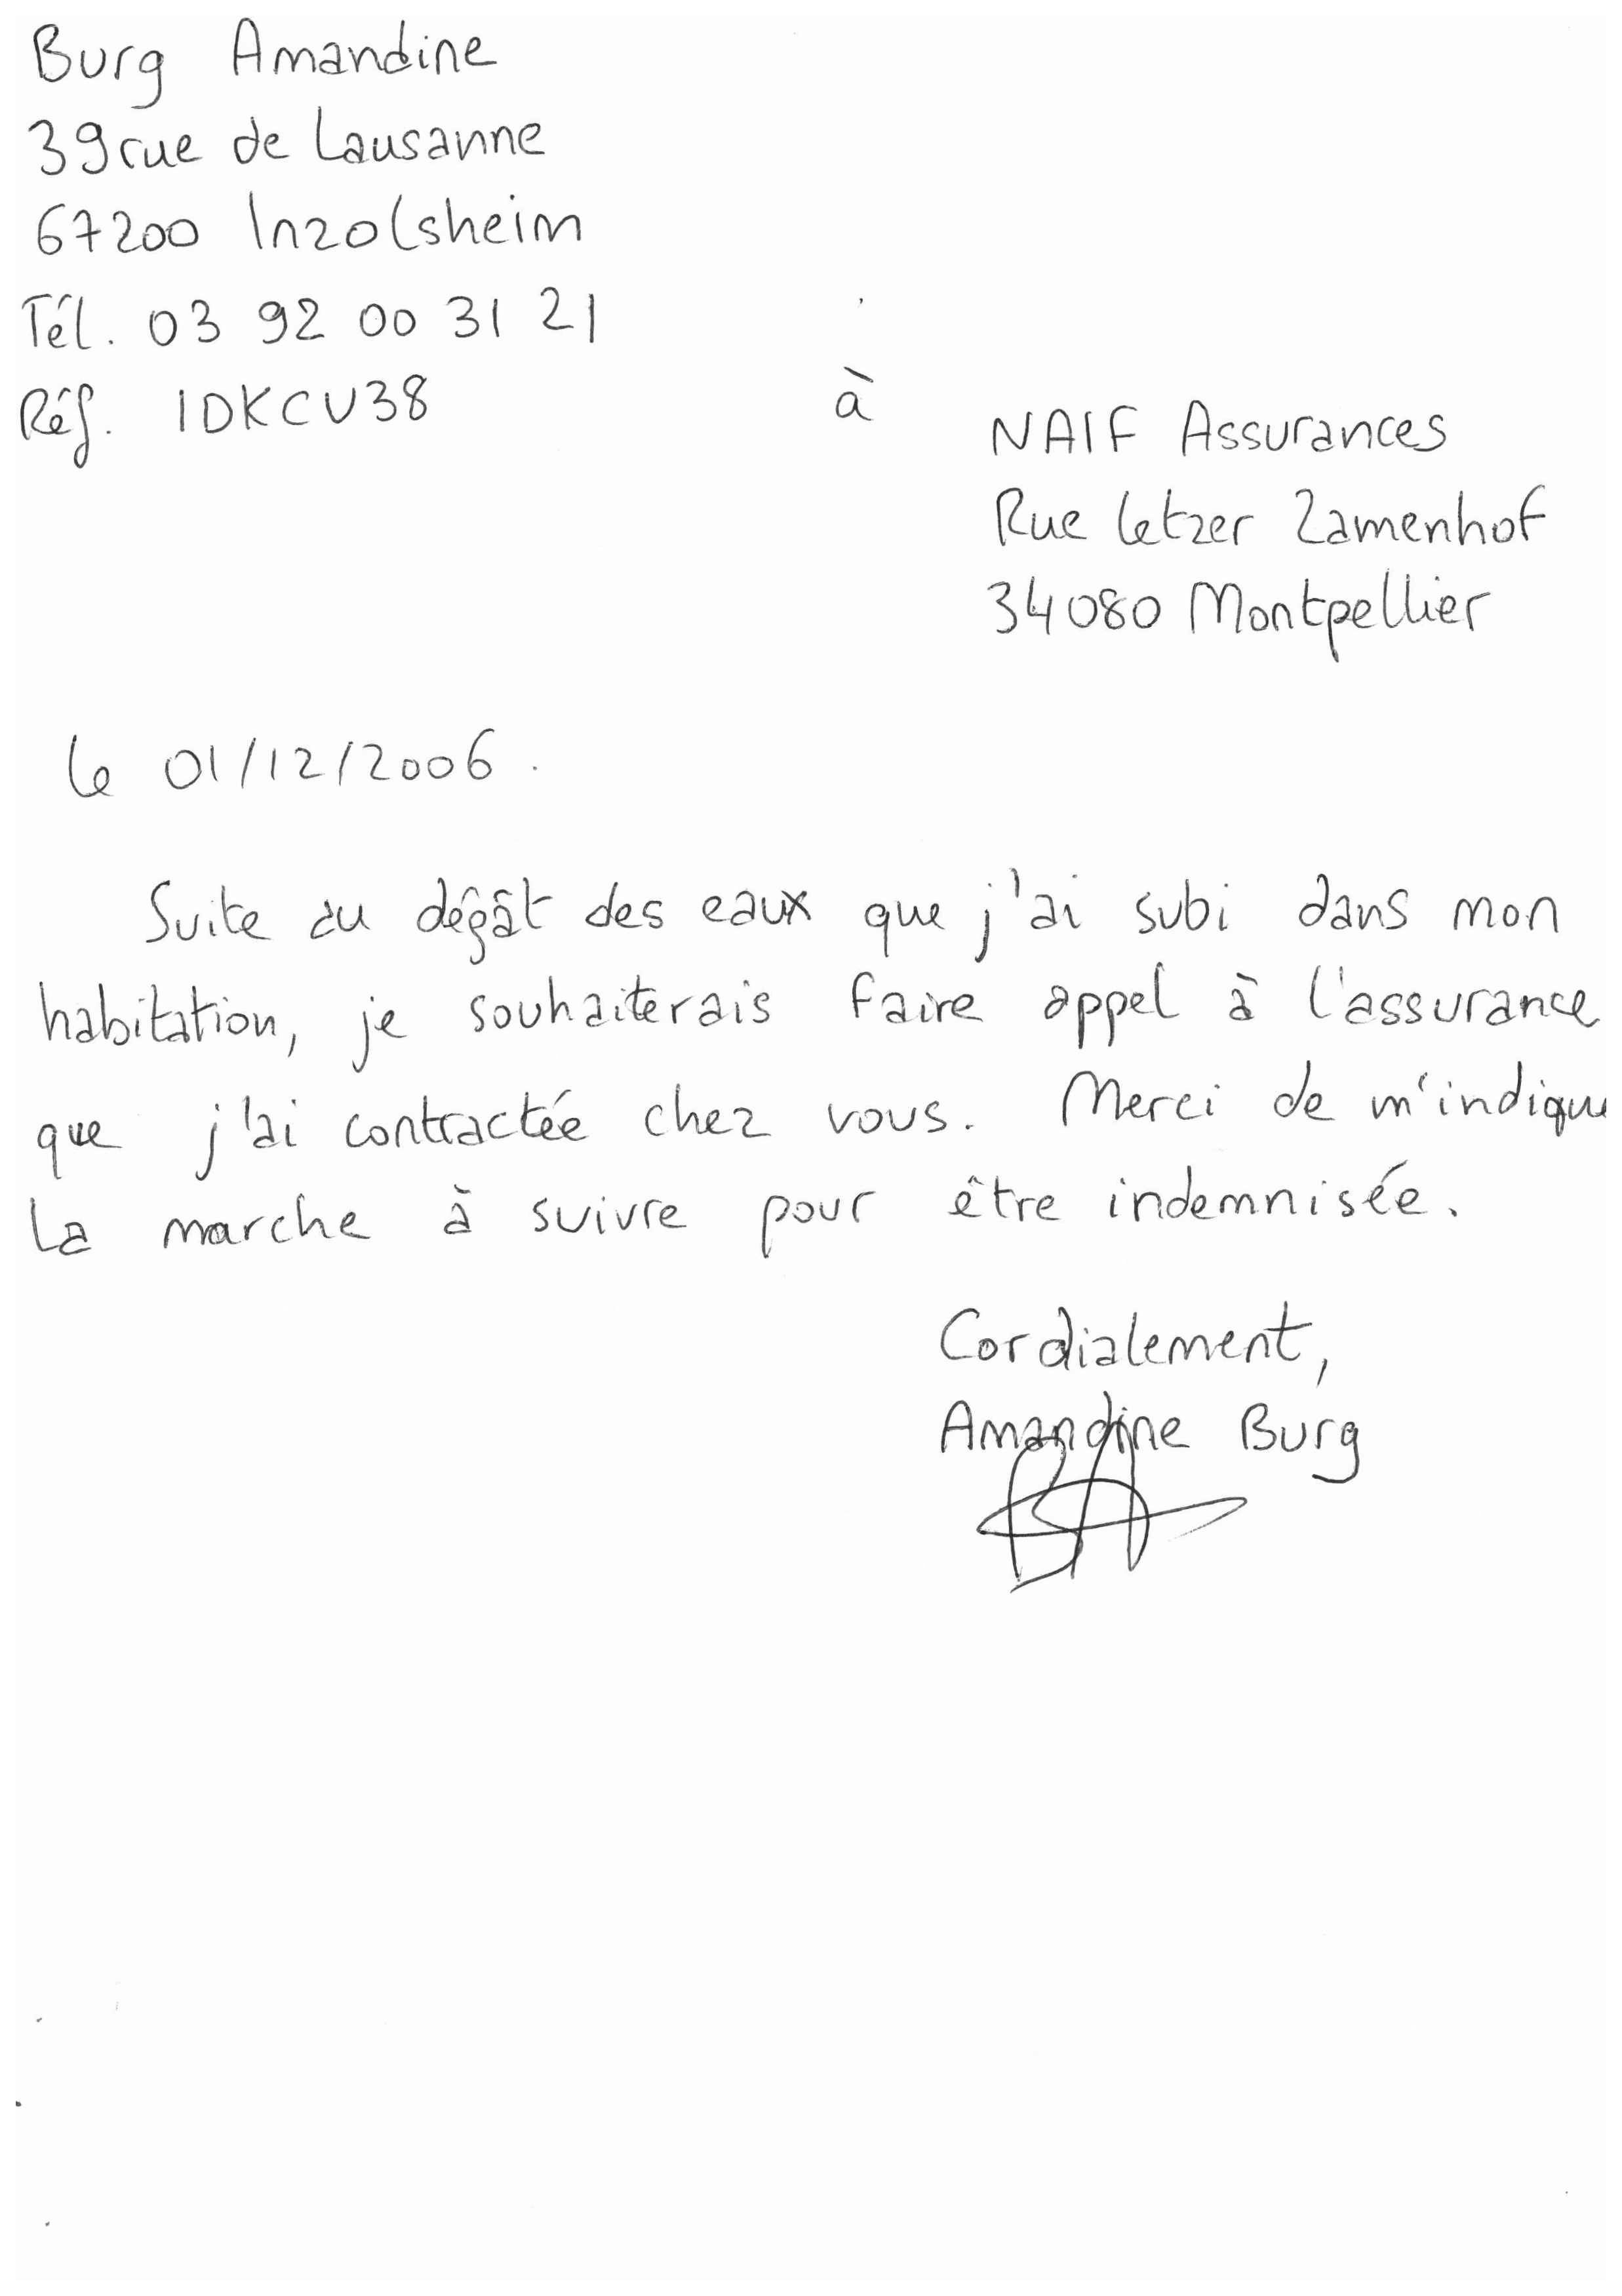 Burg Amandine
39 rue de Lausanne
67200 Inzolsheim
Tél. 03 92 00 31 21
Réf. IDKCU38
à
NAIF Assurances
Rue Letzer Zamenhof
34080 Montpellier
le 01/12/2006.
Suite au dégât des eaux que j'ai subi dans mon
habitation, je souhaiterais faire appel à l'assurance
que j'ai contractée chez vous. Merci de m'indiqu
la marche à suivre pour être indemnisée.
Cordialement,
Amandine Burg